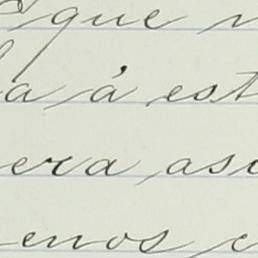 que
a á est
era asi
enos c